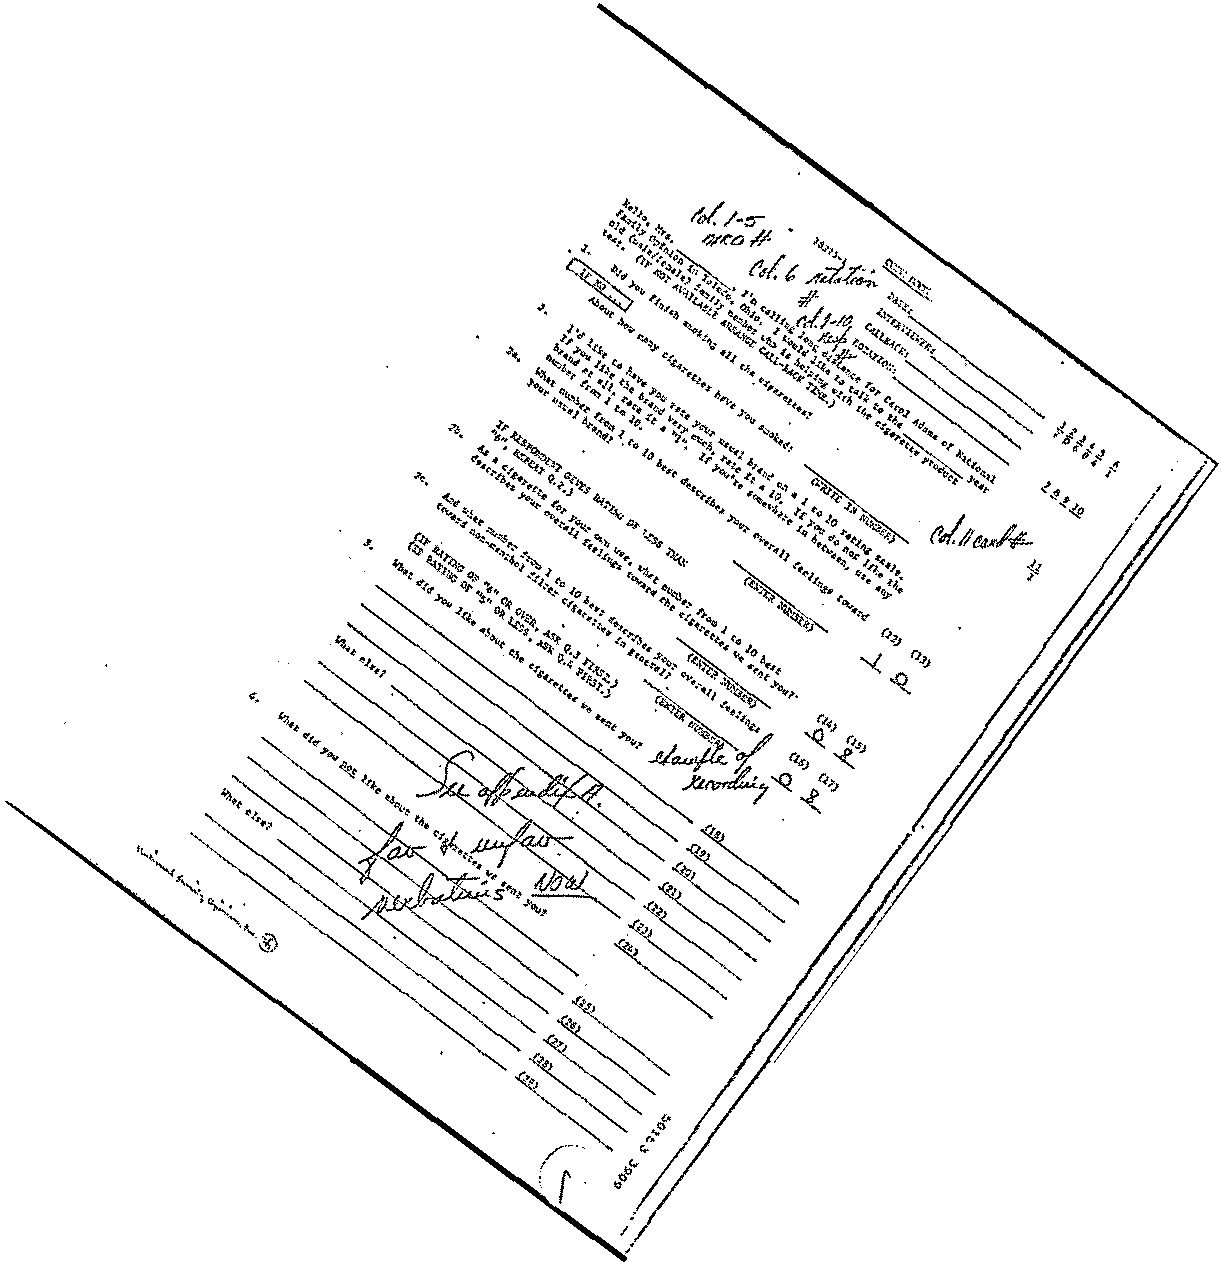 Col. 1-5
MRO #
Col. 6 rotation
#
Col. 7-10
resp
#
DATE:
INTERVIEWER:
CALLBACK:
ROTATION:
1 2 3 4 5 6
7 8 9 10
Hello, Mrs. , I'm calling long distance for Carol Adams of National
Family Opinion in Toledo, Ohio. I would like to talk to the year
old (male/female) family member who is helping with the cigarette product
test. (IF NOT AVAILABLE ARRANGE CALL-BACK TIME.)
Col. 11 card #
11
1
1. Did you finish smoking all the cigarettes?
IF NO ...
About how many cigarettes have you smoked:
(WRITE IN NUMBER)
2. I'd like to have you rate your usual brand on a 1 to 10 rating scale.
If you like the brand very much, rate it a 10. If you do not like the
brand at all, rate it a "1". If you're somewhere in between, use any
number from 1 to 10.
2a. What number from 1 to 10 best describes your overall feelings toward
your usual brand?
(ENTER NUMBER)
(12) (13)
1 0
IF RESPONDENT GIVES RATING OF LESS THAN
"6", REPEAT Q.2.)
2b. As a cigarette for your own use, what number from 1 to 10 best
describes your overall feelings toward the cigarettes we sent you?
(ENTER NUMBER)
(14) (15)
0 8
2c. And what number from 1 to 10 best describes your overall feelings
toward non-menthol filter cigarettes in general?
(ENTER NUMBER)
(16) (17)
0 8
example of
recording
(IF RATING OF "6" OR OVER, ASK Q.3 FIRST.)
(IF RATING OF "5" OR LESS, ASK Q.4 FIRST.)
3. What did you like about the cigarettes we sent you?
(18)
(19)
(20)
(21)
(22)
What else?
(23)
(24)
See appendix A.
fav & unfav
verbatims NOW
4. What did you not like about the cigarettes we sent you?
(25)
(26)
(27)
(28)
What else?
(29)
National Family Opinion, Inc.
50163 3909